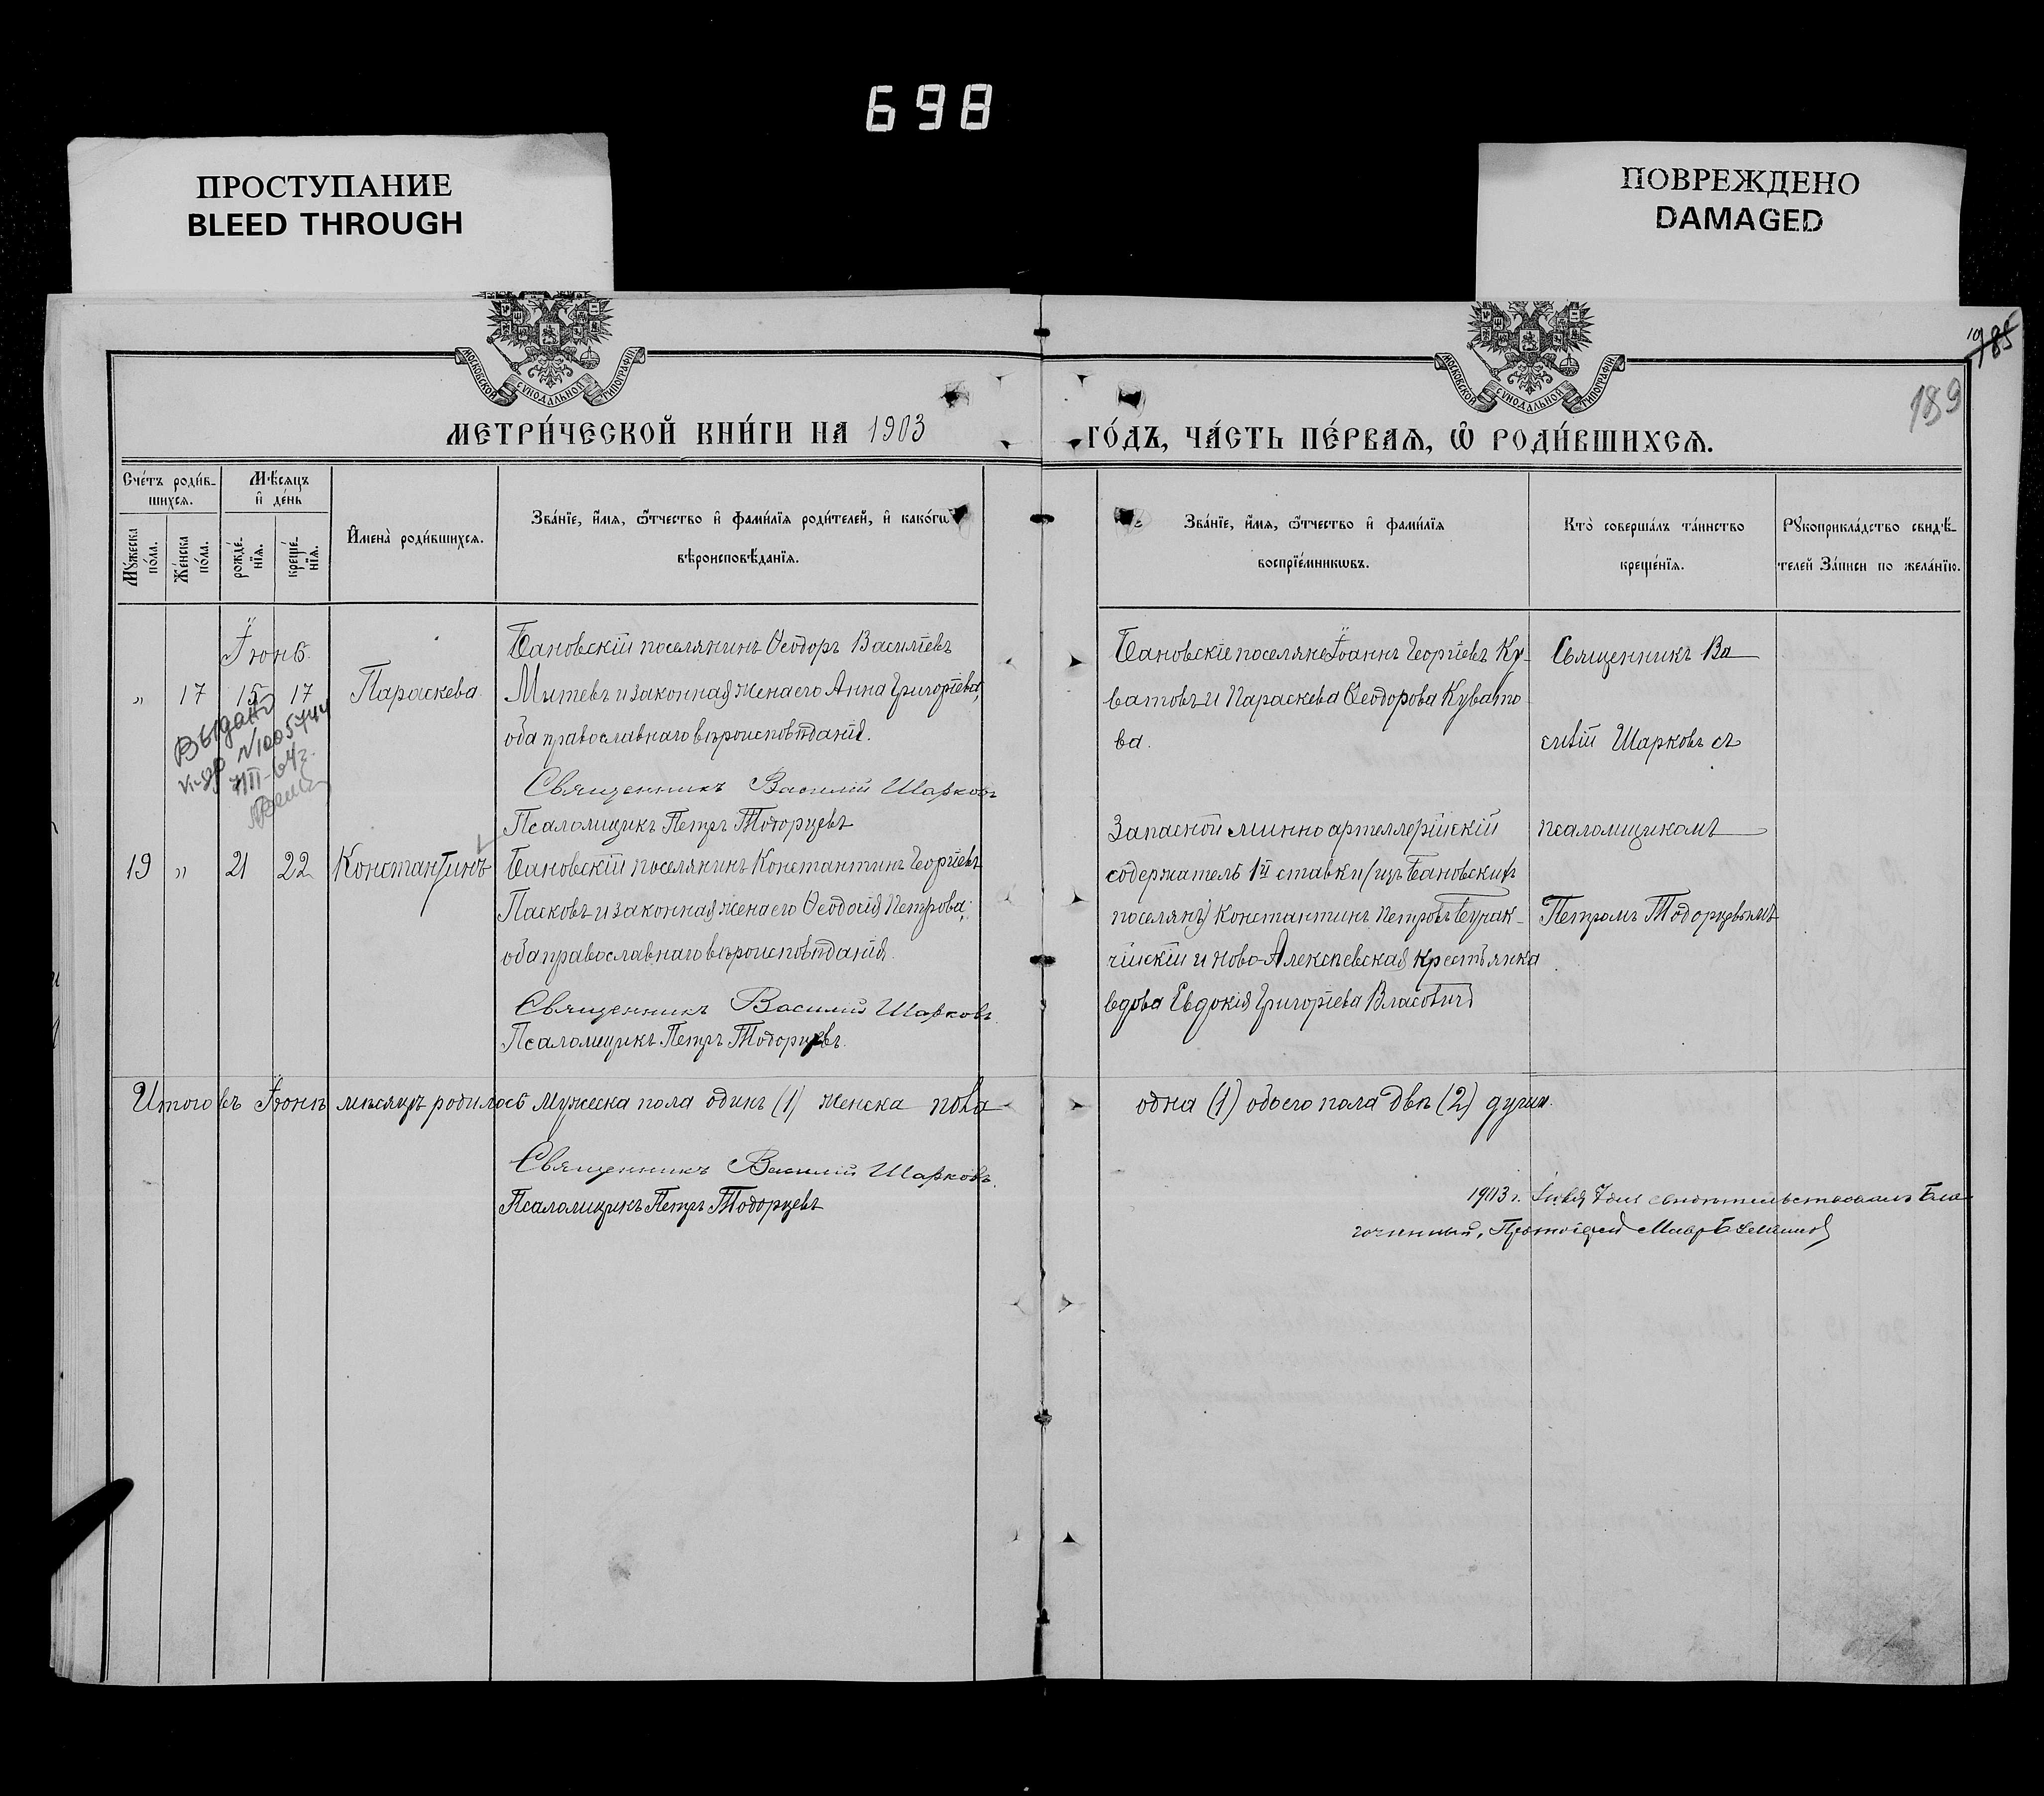 698
ПРОСТУПАНИЕ
BLEED THROUGH
ПОВРЕЖДЕНО
DAMAGED
МОСКОВСКОЙ СѴНОДАЛЬНОЙ ТИПОГРАФІИ
МОСКОВСКОЙ СѴНОДАЛЬНОЙ ТИПОГРАФІИ
185
189
МЕТРИ́ЧЕСКОЙ КНИ́ГИ НА 1903
ГО́ДЪ, ЧА́СТЬ ПЕ́РВАѦ, Ѽ РОДИ́ВШИХСѦ.
Сче́тъ роди́в-
шихсѧ.
Мѣ́сѧцъ
и҆ де́нь
Мꙋ́жеска по́ла.
Же́нска по́ла.
рожде́-
нїѧ.
креще́-
нїѧ.
И҆мена̀ роди́вшихсѧ.
Зва́нїе, и҆́мѧ, ѻ҆́тчество и҆ фами́лїѧ роди́телей, и҆ како́гѡ
вѣроисповѣ́данїѧ.
Зва́нїе, и҆́мѧ, ѻ҆́тчество и҆ фами́лїѧ
воспрїе́мникѡвъ.
Кто̀ соверша́лъ та́инство
креще́нїѧ.
Рꙋкоприкла́дство свидѣ́-
телей за́писи по жела́нїю.
Іюнь.
„ 17 15 17 Параскева.
Бановскій поселянинъ Ѳеодоръ Василіевъ
Митевъ и законная жена его Анна Григоріева,
оба православнаго вѣроисповѣданія.
Священникъ Василій Шарковъ
Псаломщикъ Петръ Тодорцевъ
Выдано
№1005744
III-64г.
Бановскіе поселяне Іоаннъ Георгіевъ Ку-
ватовъ и Параскева Ѳеодорова Кувато
ва.
Священникъ Ва
силій Шарковъ съ
псаломщикомъ
Петромъ Тодорцевымъ
19 „ 21 22 Константинъ
Бановскій поселянинъ Константинъ Георгіевъ
Пасковъ и законная жена его Ѳеодосія Петрова;
оба православнаго вѣроисповѣданія.
Священникъ Василій Шарковъ.
Псаломщикъ Петръ Тодорцевъ.
Запасной минно артиллерійскій
содержатель 1й ставки (изъ Бановскихъ
поселянъ) Константинъ Петровъ Бунак-
чійскій и Ново-Алексѣевская крестьянка
вдова Евдокія Григоріева Власовичъ
Итого въ Іюнѣ мѣсяцѣ родилось мужеска пола одинъ (1) женска пола
одна (1) обоего пола двѣ (2) души.
Священникъ Василій Шарковъ.
Псаломщикъ Петръ Тодорцевъ
1903 г. Іюля 7 дня свидѣтельствовалъ Бла-
гочинный, Протоіерей